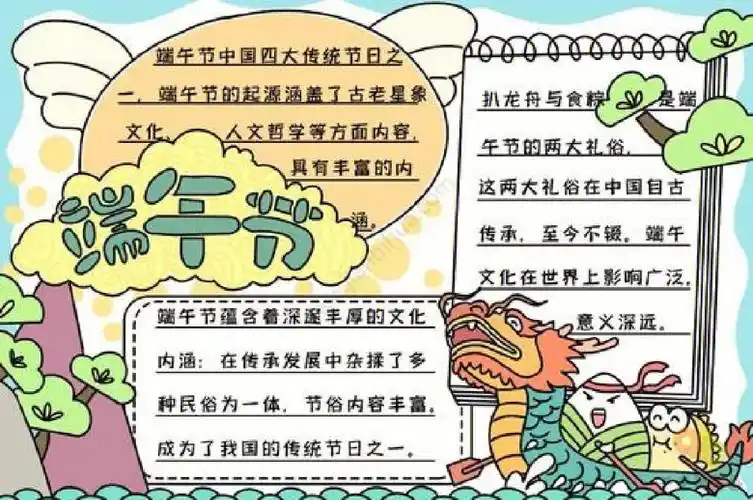 端午节中国四大传统节日之
一，端午节的起源涵盖了古老星象
文化、人文哲学等方面内容，
具有丰富的内
涵。
端午节
扒龙舟与食粽是端
午节的两大礼俗，
这两大礼俗在中国自古
传承，至今不辍。端午
文化在世界上影响广泛，
意义深远。
端午节蕴含着深邃丰厚的文化
内涵；在传承发展中杂揉了多
种民俗为一体，节俗内容丰富。
成为了我国的传统节日之一。